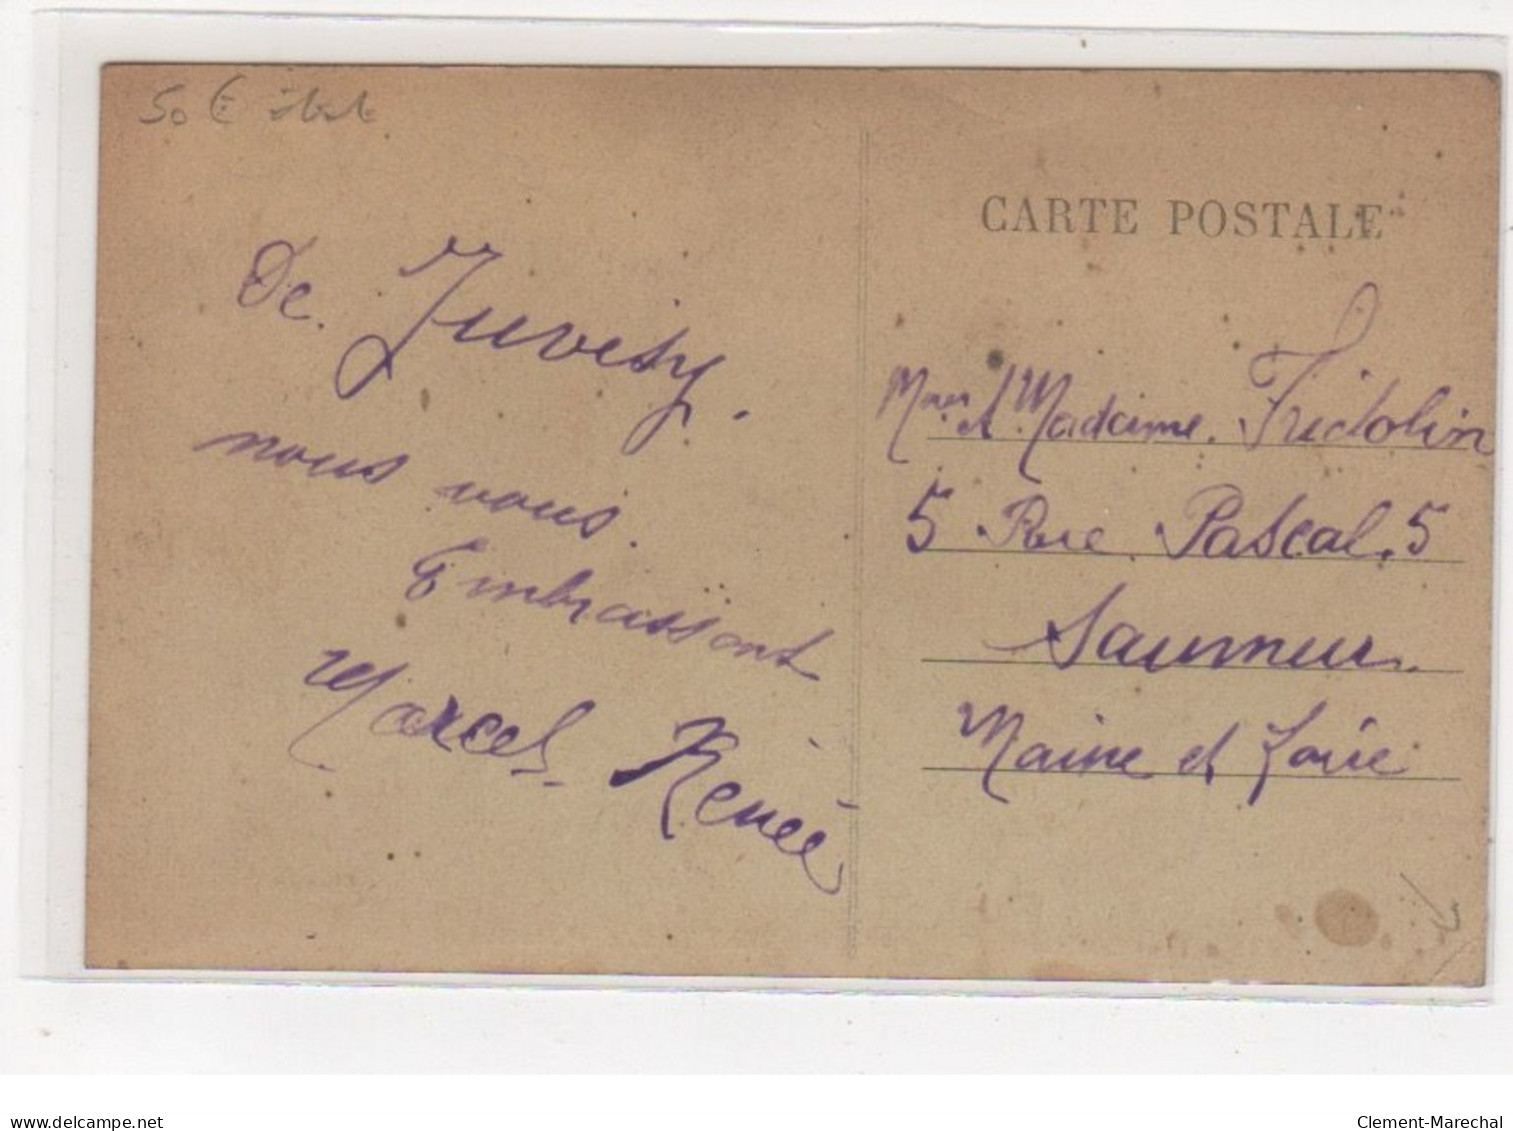 50 € état
De Juvisy.
nous vous.
Embrassont
Marcel Renée
CARTE POSTALE
et Madame. Fridolin
5 Rue Pascal. 5
Saumur.
Maine et Loire
delcampe.net
Clement-Marechal